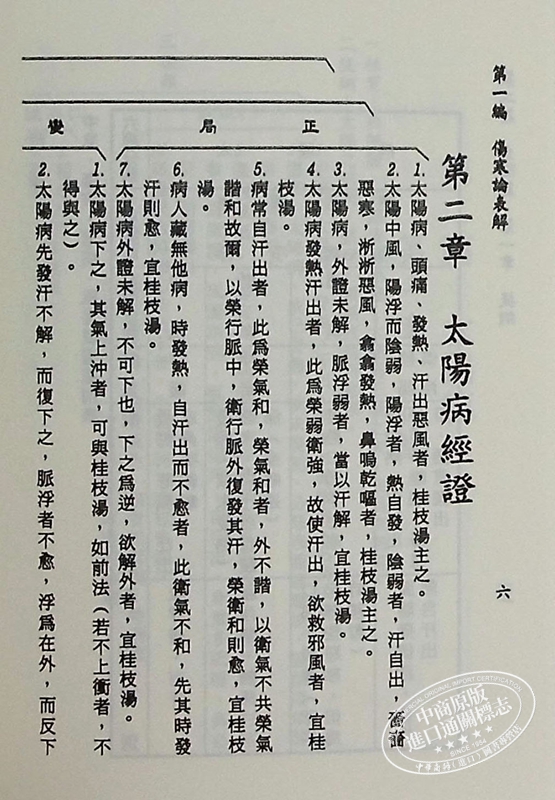 第一編　傷寒論表解
六
第二章　太陽病經證
正局
1.太陽病、頭痛、發熱、汗出惡風者，桂枝湯主之。
2.太陽中風，陽浮而陰弱，陽浮者，熱自發，陰弱者，汗自出，嗇嗇
惡寒，淅淅惡風，翕翕發熱，鼻鳴乾嘔者，桂枝湯主之。
3.太陽病，外證未解，脈浮弱者，當以汗解，宜桂枝湯。
4.太陽病發熱汗出者，此爲榮弱衛強，故使汗出，欲救邪風者，宜桂
枝湯。
5.病常自汗出者，此爲榮氣和，榮氣和者，外不諧，以衛氣不共榮氣
諧和故爾，以榮行脈中，衛行脈外復發其汗，榮衛和則愈，宜桂枝
湯。
6.病人藏無他病，時發熱，自汗出而不愈者，此衛氣不和，先其時發
汗則愈，宜桂枝湯。
7.太陽病外證未解，不可下也，下之爲逆，欲解外者，宜桂枝湯。
變
1.太陽病下之，其氣上沖者，可與桂枝湯，如前法（若不上衝者，不
得與之）。
2.太陽病先發汗不解，而復下之，脈浮者不愈，浮爲在外，而反下
中商原版
進口通關標志